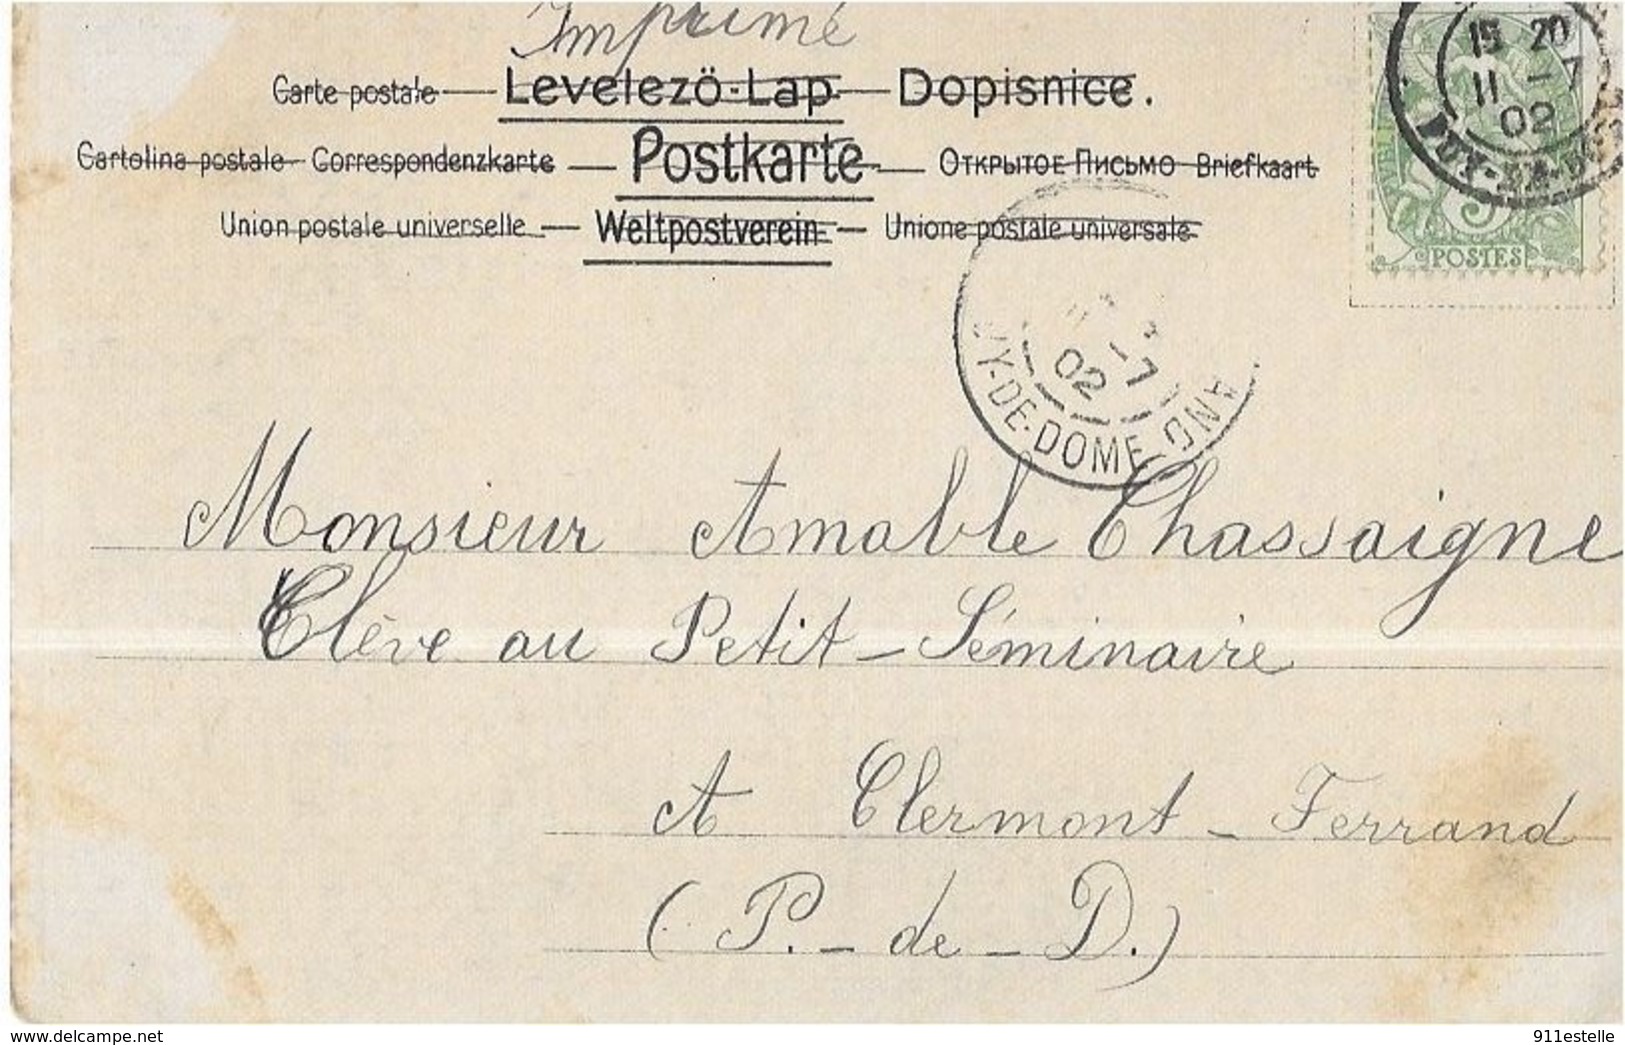 Imprimé
Carte postale — Levelezö-Lap — Dopisnice.
Cartolina postale — Correspondenzkarte — Postkarte — Открытое Письмо Briefkaart
Union postale universelle — Weltpostverein — Unione postale universale.
15 20
11 - 7
02
PUY-DE-DÔME
5
POSTES
7
02
Y-DE-DOME
Monsieur Amable Chassaigne
Elève au Petit-Séminaire
A Clermont-Ferrand
(P.-de-D.)
https://www.delcampe.net
911estelle